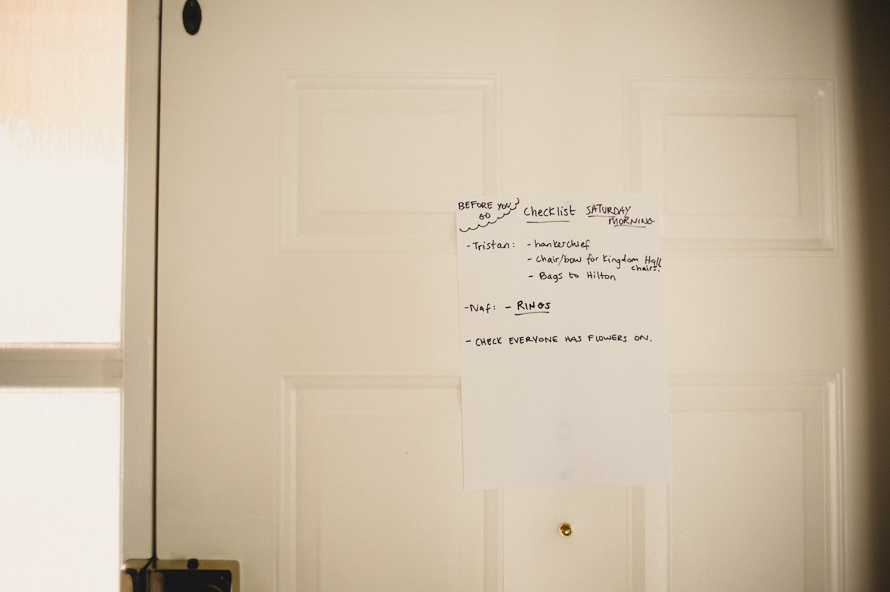 BEFORE YOU GO
Checklist SATURDAY MORNING
- Tristan: - hankerchief
- chair/bow for Kingdom Hall chairs.
- Bags to Hilton
- Naf: - RINGS
- CHECK EVERYONE HAS FLOWERS ON.